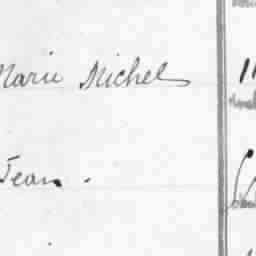 Marie Michel
Jean .